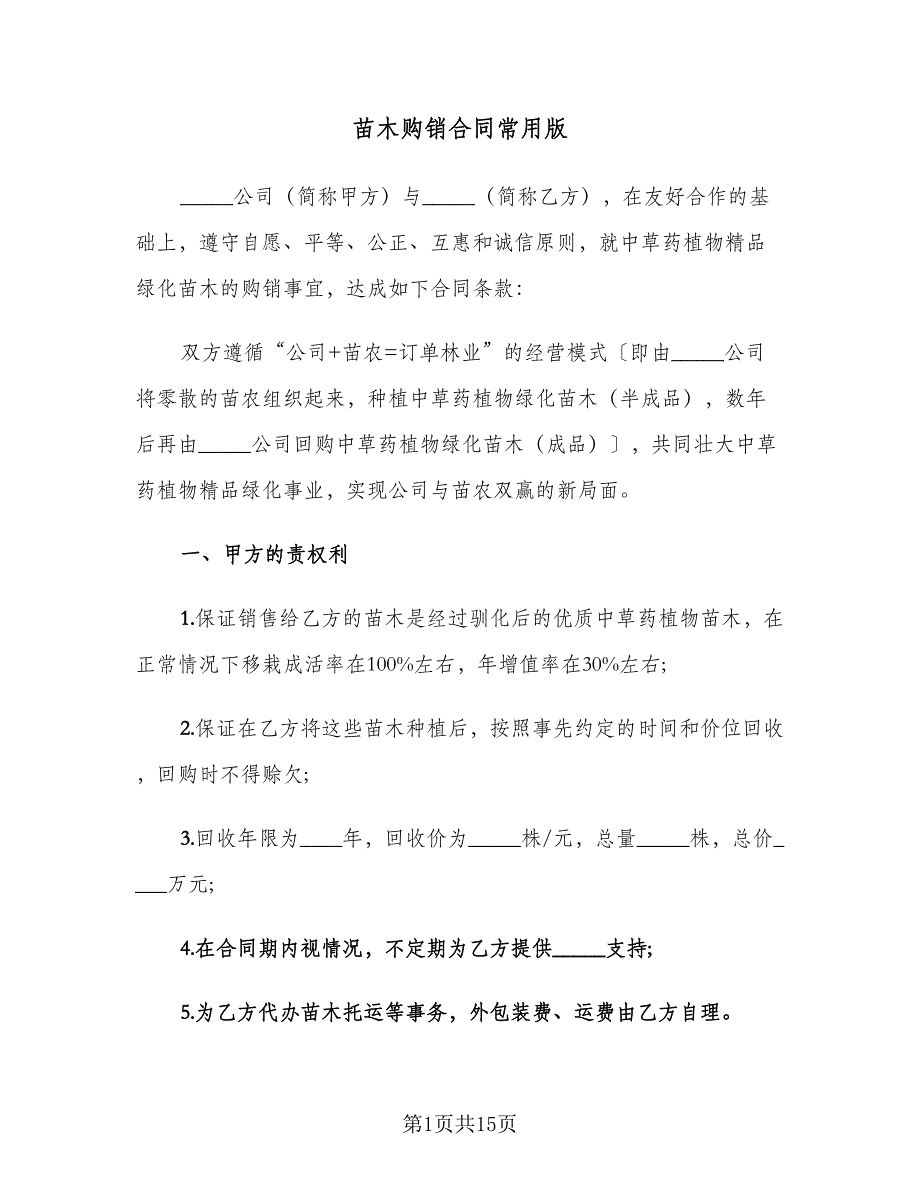 苗木购销合同常用版
_____公司（简称甲方）与_____（简称乙方），在友好合作的基
础上，遵守自愿、平等、公正、互惠和诚信原则，就中草药植物精品
绿化苗木的购销事宜，达成如下合同条款：
双方遵循“公司+苗农=订单林业”的经营模式〔即由_____公司
将零散的苗农组织起来，种植中草药植物绿化苗木（半成品），数年
后再由_____公司回购中草药植物绿化苗木（成品）〕，共同壮大中草
药植物精品绿化事业，实现公司与苗农双赢的新局面。
一、甲方的责权利
1.保证销售给乙方的苗木是经过驯化后的优质中草药植物苗木，在
正常情况下移栽成活率在100%左右，年增值率在30%左右;
2.保证在乙方将这些苗木种植后，按照事先约定的时间和价位回收
，回购时不得赊欠;
3.回收年限为____年，回收价为_____株/元，总量_____株，总价_
___万元;
4.在合同期内视情况，不定期为乙方提供_____支持;
5.为乙方代办苗木托运等事务，外包装费、运费由乙方自理。
第1页共15页